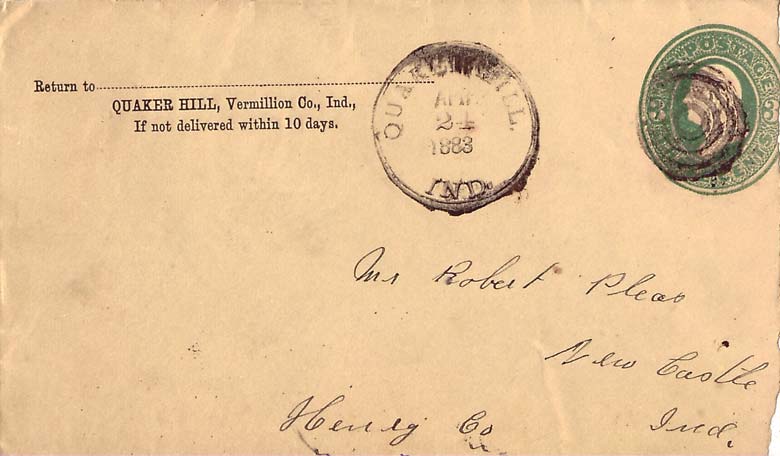 Return to
QUAKER HILL, Vermillion Co., Ind.,
If not delivered within 10 days.
QUAKER HILL.
APR
24
1883
IND.
POSTAGE
CENTS
Mr Robert Pleas
New Castle
Henry Co Ind.